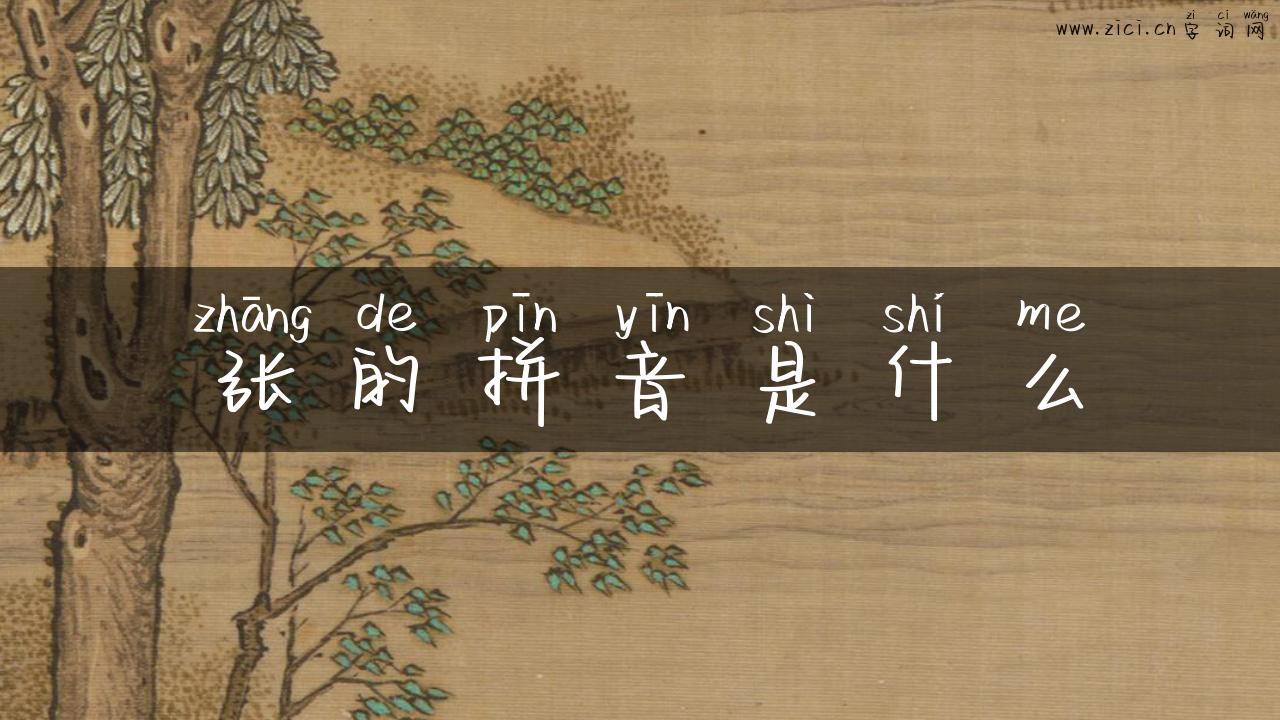 zì cí wǎng
www.zici.cn 字词网
zhāng de pīn yīn shì shí me
张的拼音是什么